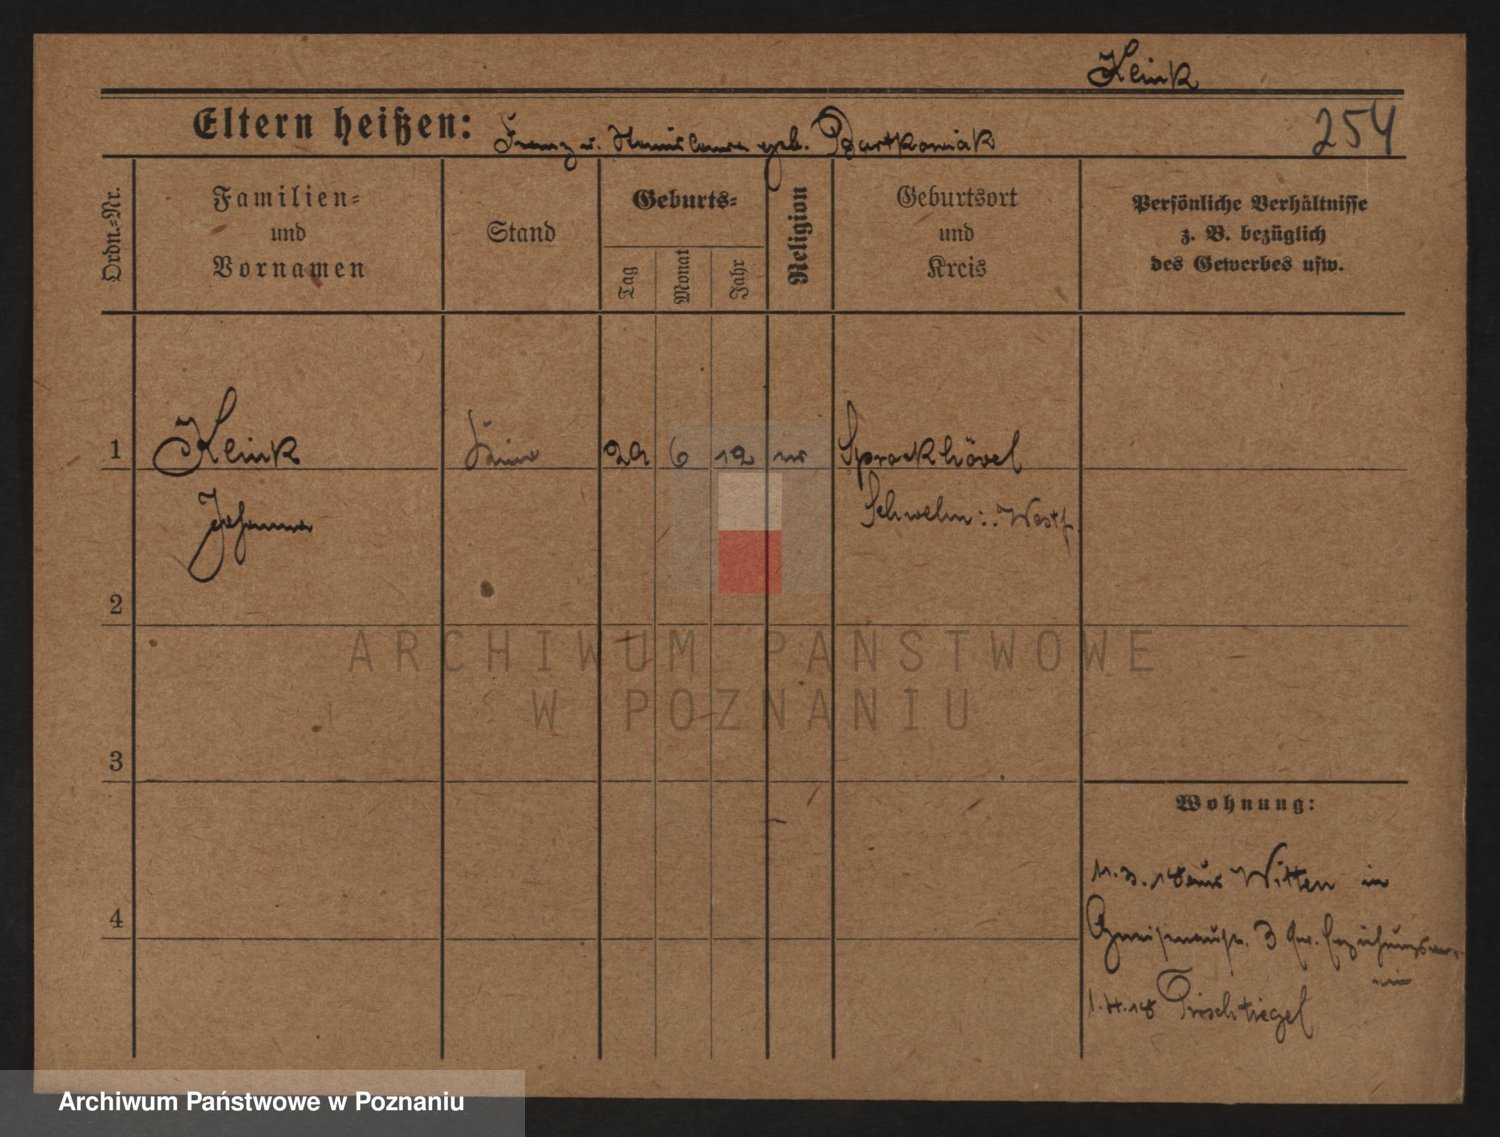 Klink
Eltern heißen: Franz u. Stanislawa geb. Bartkowiak
254
Ordn.-Nr.
Familien-
und
Vornamen
Stand
Geburts-
Tag
Monat
Jahr
Religion
Geburtsort
und
Kreis
Persönliche Verhältnisse
z. B. bezüglich
des Gewerbes usw.
1 Klink 29 6 12 Sprockhövel
Johanna Schwelm i. Westf.
2
3
4
Wohnung:
18 aus Witten in
Gneisenaustr. 3
in
18 Tirschtiegel
ARCHIWUM PAŃSTWOWE
W POZNANIU
Archiwum Państwowe w Poznaniu